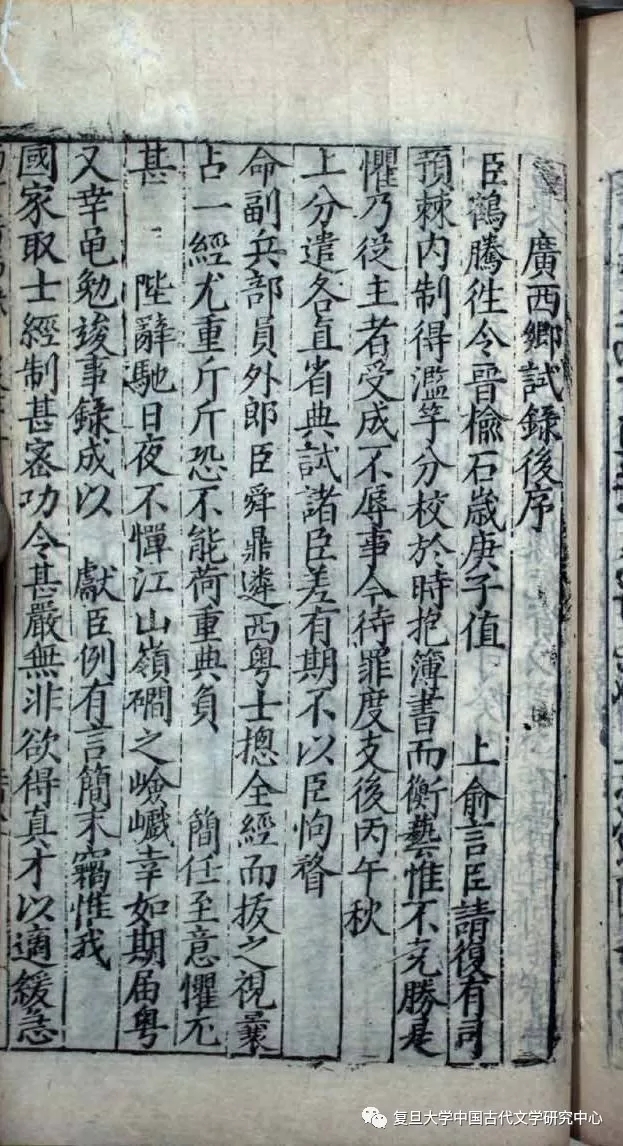 廣西鄉試錄後序
臣鶴騰徃令晉榆石歲庚子值 上俞言臣請復有司
預棘內制得濫竽分校於時抱簿書而衡藝惟不克勝是
懼乃從主者受成不辱事今待罪度支後丙午秋
上分遣各直省典試諸臣差有期不以臣恂瞀
命副兵部員外郎臣舜鼎遴西粵士揔全經而拔之視曩
占一經尤重斤斤恐不能荷重典負 簡任至意懼尢
甚 陛辭馳日夜不憚江山嶺磵之嶮巇幸如期届粵
又幸黽勉竣事錄成以 獻臣例有言簡末竊惟我
國家取士經制甚密功令甚嚴無非欲得真才以適緩急
复旦大学中国古代文学研究中心